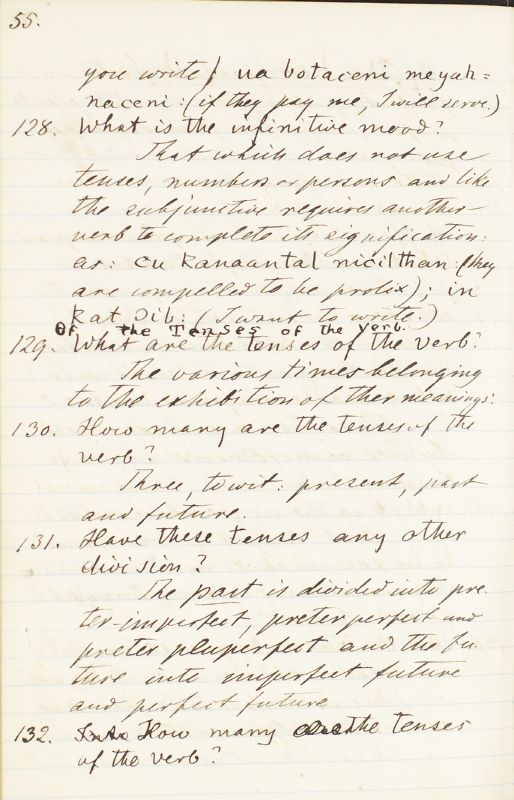 55.
you write; ua botaceni meyah=
naceni: (if they pay me, I will serve.)
128. What is the infinitive mood?
That which does not use
tenses, numbers or persons and like
the subjunctive requires another
verb to complete its signification:
as: cu kanaantal nicilthan: (they
are compelled to be prolix); in
kat Ɔib: (I want to write.)
Of the Tenses of the verb.
129. What are the tenses of the verb?
The various times belonging
to the exhibition of ther meanings:
130. How many are the tenses of the
verb?
Three, to wit: present, past
and future.
131. Have these tenses any other
division?
The past is divided into pre-
ter-imperfect, preter perfect and
preter pluperfect and the fu-
ture into imperfect future
and perfect future
132. How many the tenses
of the verb?